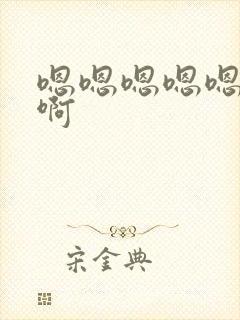 嗯嗯嗯嗯嗯
啊
宋金典